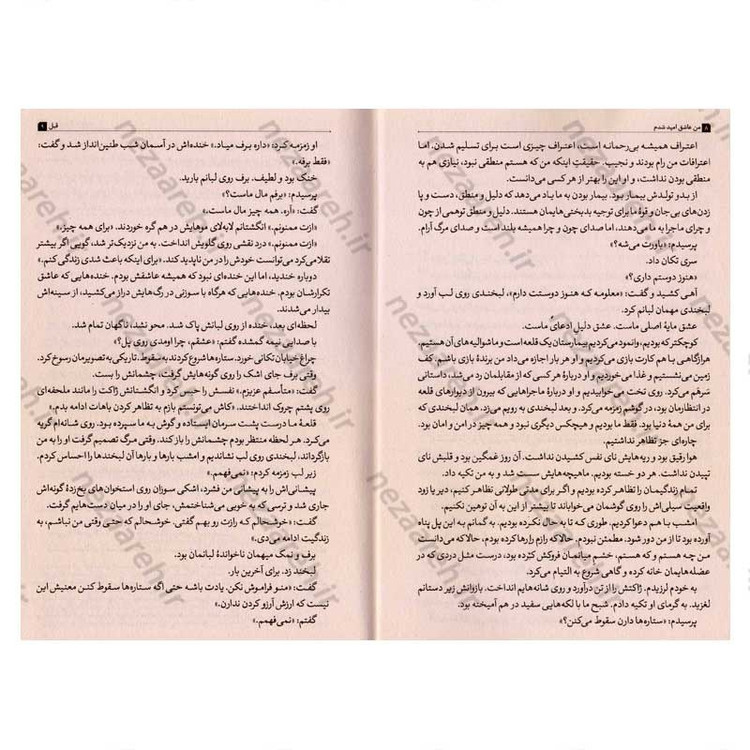 ۸ من عاشق امید شدم
اعتراف همیشه بی‌رحمانه است، اعتراف چیزی است برای تسلیم شدن. اما
اعترافات من رام بودند و نجیب. حقیقتِ اینکه من که هستم منطقی نبود، نیازی هم به
منطقی بودن نداشت، و او این را بهتر از هر کسی می‌دانست.
از بدو تولدش بیمار بود. بیمار بودن به ما یاد می‌دهد که دلیل و منطق، دست و پا
زدن‌های بی‌جان و قوهٔ ما برای توجیه بدبختی‌هایمان هستند. دلیل و منطق توهمی از چون
و چرای ماجرا به ما می‌دهند، اما صدای چون و چرا همیشه بلند است و صدای مرگ آرام.
پرسیدم: «باورت می‌شه؟»
سری تکان داد.
«هنوز دوستم داری؟»
آهی کشید و گفت: «معلومه که هنوز دوستت دارم»، لبخندی روی لب آورد و
لبخندی مهمان لبانم کرد.
عشق مایهٔ اصلی ماست. عشق دلیلِ ادعای ماست.
کوچکتر که بودیم، وانمود می‌کردیم بیمارستان یک قلعه است و ما شوالیه‌های آن هستیم.
هرازگاهی با هم کارت بازی می‌کردیم و او هر بار اجازه می‌داد من برندهٔ بازی باشم. کف
زمین می‌نشستیم و غذا می‌خوردیم و او دربارهٔ هر کسی که از مقابلمان رد می‌شد، داستانی
سرهم می‌کرد. روی تخت می‌خوابیدیم و او دربارهٔ ماجراهایی که بیرون از دیوارهای قلعه
در انتظارمان بود، در گوشم زمزمه می‌کرد. و بعد لبخندی به رویم می‌زد. همان لبخندی که
برای من همهٔ دنیا بود. فقط ما بودیم و هیچکس دیگری نبود و همه چیز در امن و امان بود.
چاره‌ای جز تظاهر نداشتیم.
هوا رقیق بود و ریه‌هایش نای نفس کشیدن نداشت. آن روز غمگین بود و قلبش نای
تپیدن نداشت. هر دو خسته بودیم. ماهیچه‌هایش سست شد و به من تکیه داد.
تمام زندگیمان را تظاهر کرده بودیم و اگر برای مدتی طولانی تظاهر کنیم، دیر یا زود
واقعیت سیلی‌اش را روی گوشمان می‌خواباند تا بیشتر از این به آن توهین نکنیم.
امشب با هم دعوا کردیم. طوری که تا به حال نکرده بودیم. به گمانم به این پل پناه
آورده بود تا از من دور شود. مطمئن نبودم. حالا که رازم را رها کرده بودم، حالا که می‌دانست
من چه هستم و که هستم، خشم میانمان فروکش کرده بود، درست مثل دردی که در
عضله‌هایمان خانه کرده و گاهی شروع به التیام می‌کرد.
به خودم لرزیدم. ژاکتش را از تن درآورد و روی شانه‌هایم انداخت. بازوانش زیر دستانم
لغزید. به گرمای او تکیه دادم. شبح ما با لکه‌هایی سفید در هم آمیخته بود.
پرسیدم: «ستاره‌ها دارن سقوط می‌کنن؟»
قبل ۹
او زمزمه کرد: «داره برف میاد.» خنده‌اش در آسمان شب طنین‌انداز شد و گفت:
«فقط برفه.»
خنک بود و لطیف. برف روی لبانم بارید.
پرسیدم: «برفم مال ماست؟»
گفت: «آره. همه چیز مال ماست.»
«ازت ممنونم.» انگشتانم لابه‌لای موهایش در هم گره خوردند. «برای همه چیز.»
«ازت ممنونم.» درد نقشی روی گلویش انداخت. به من نزدیک‌تر شد، گویی اگر بیشتر
تقلا می‌کرد می‌توانست خودش را در من ناپدید کند. «برای اینکه باعث شدی زندگی کنم.»
دوباره خندید، اما این خنده‌ای نبود که همیشه عاشقش بودم. خنده‌هایی که عاشق
تکرارشان بودم. خنده‌هایی که هرگاه با سوزنی در رگ‌هایش دراز می‌کشید، از سینه‌اش
بیدار می‌شدند.
لحظه‌ای بعد، خنده از روی لبانش پاک شد. محو نشد، ناگهان تمام شد.
با صدایی نیمه گمشده گفتم: «عشقم، چرا اومدی روی پل؟»
چراغ خیابان تکانی خورد. ستاره‌ها شروع کردند به سقوط. تاریکی به تصویرمان رسوخ کرد.
وقتی برف جای اشک را روی گونه‌هایش گرفت، چشمانش را بست.
گفت: «متأسفم عزیزم.» نفسش را حبس کرد و انگشتانش ژاکت را مانند ملحفه‌ای
روی پشتم چروک انداختند. «کاش می‌تونستم بازم به تظاهر کردن باهات ادامه بدم.»
قلعهٔ ما درست پشت سرمان ایستاده و گوش به ما سپرده بود. روی شانه‌ام گریه
می‌کرد. هر لحظه منتظر بودم چشمانش را باز کند. وقتی مرگ تصمیم گرفت او را به من
بازگرداند، لبخندی روی لب نشاندیم و امشب بارها و بارها آن لبخندها را احساس کردم.
زیر لب زمزمه کردم: «نمی‌فهمم.»
پیشانی‌اش را به پیشانی من فشرد، اشکی سوزان روی استخوان‌های یخ‌زدهٔ گونه‌اش
جاری شد و ترسی که به خوبی می‌شناختمش، جای او را در میان دست‌هایم گرفت.
گفت: «خوشحالم که رازت رو بهم گفتی. خوشحالم که حتی وقتی من نباشم، به
زندگیت ادامه می‌دی.»
برف و نمک میهمان ناخواندهٔ لبانمان بود.
لبخند زد. برای آخرین بار.
گفت: «منو فراموش نکن. یادت باشه حتی اگه ستاره‌ها سقوط کنن معنیش این
نیست که ارزش آرزو کردن ندارن.»
گفتم: «نمی‌فهمم.»
nezaareh.ir